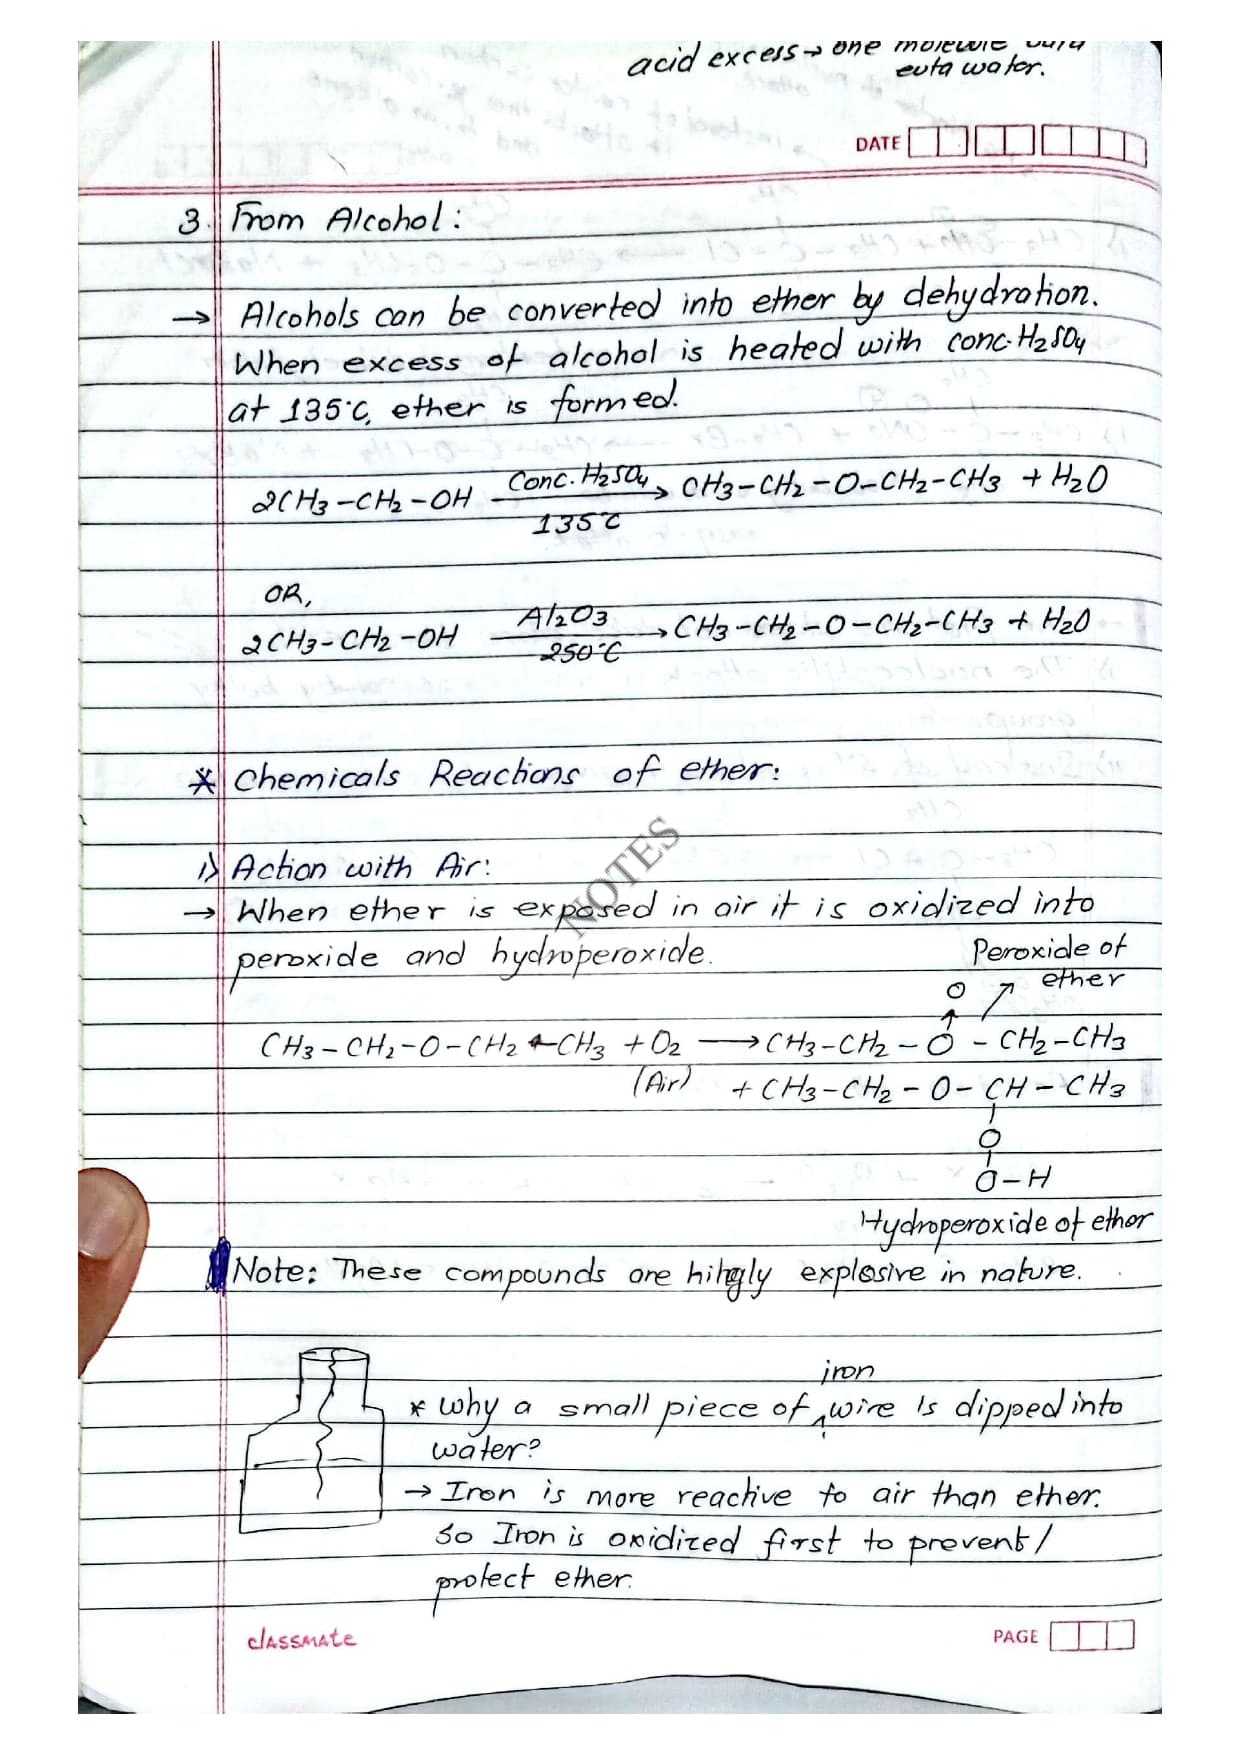 acid excess → one molecule
euta water.
DATE
3. From Alcohol:
→ Alcohols can be converted into ether by dehydration.
When excess of alcohol is heated with conc. H2SO4
at 135°C, ether is formed.
2CH3-CH2-OH Conc. H2SO4 → CH3-CH2-O-CH2-CH3 + H2O
135°C
OR,
2CH3-CH2-OH Al2O3 → CH3-CH2-O-CH2-CH3 + H2O
250°C
* Chemicals Reactions of ether:
NOTES
i) Action with Air:
→ When ether is exposed in air it is oxidized into
peroxide and hydroperoxide.
Peroxide of
ether
O
CH3-CH2-O-CH2-CH3 + O2 → CH3-CH2-O-CH2-CH3
(Air) + CH3-CH2-O-CH-CH3
O
O-H
Hydroperoxide of ether
Note: These compounds are hihgly explosive in nature.
iron
* Why a small piece of wire is dipped into
water?
→ Iron is more reactive to air than ether.
So Iron is oxidized first to prevent/
protect ether.
classmate
PAGE